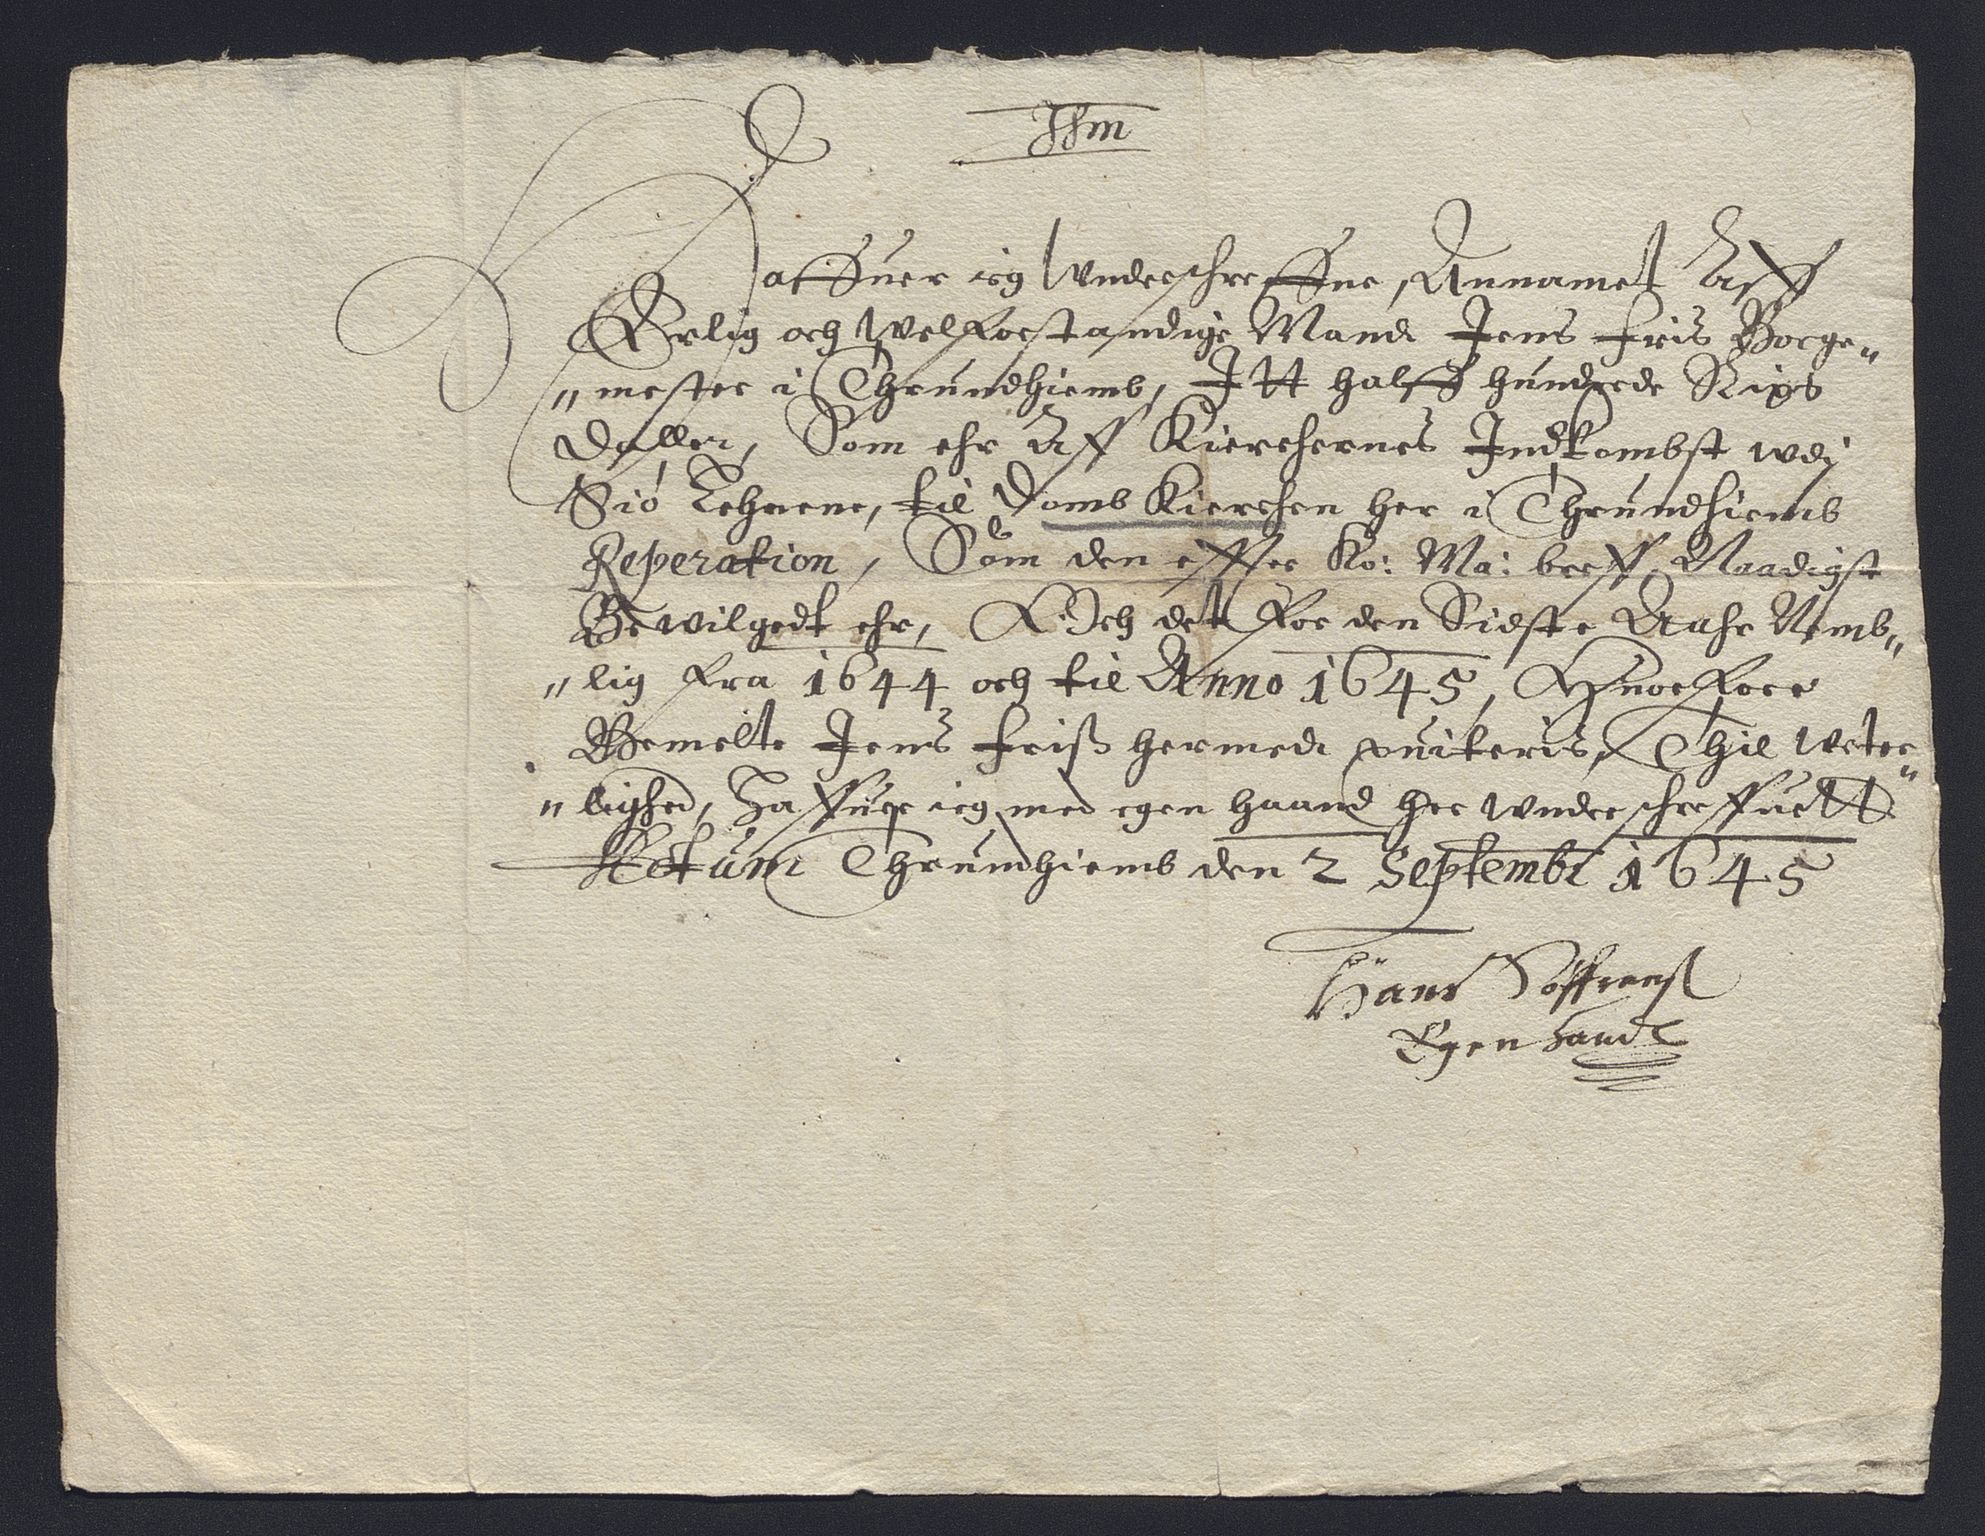 Ihm
Haffuer ieg Wnderschreffne, Annamet Aff
Erlig och Welforstandige Mand Jens Friis Borge„
„mester i Thrundhiemb, Itt halff hundrede Rixs
Daller, Som ehr Aff Kierchernes Indkombst wdj
Siø Lehnene, til Domb Kierchen her i Thrundhiemb
Reperation, Som den effter Ko: Ma: breff, Naadigst
Bewilgedt ehr, Och det for den Sidste Aahr Nemb„
„lig fra 1644 och til Anno 1645, Huorfore
Bemelte Jens Friiß hermed quiteris, Thil Weter„
„lighed, Haffuer ieg med egen haand her wnderschreffuett
Actum Thrundhiemb den 2 Septembr 1645
Hans Söffrenß
Egen Hand